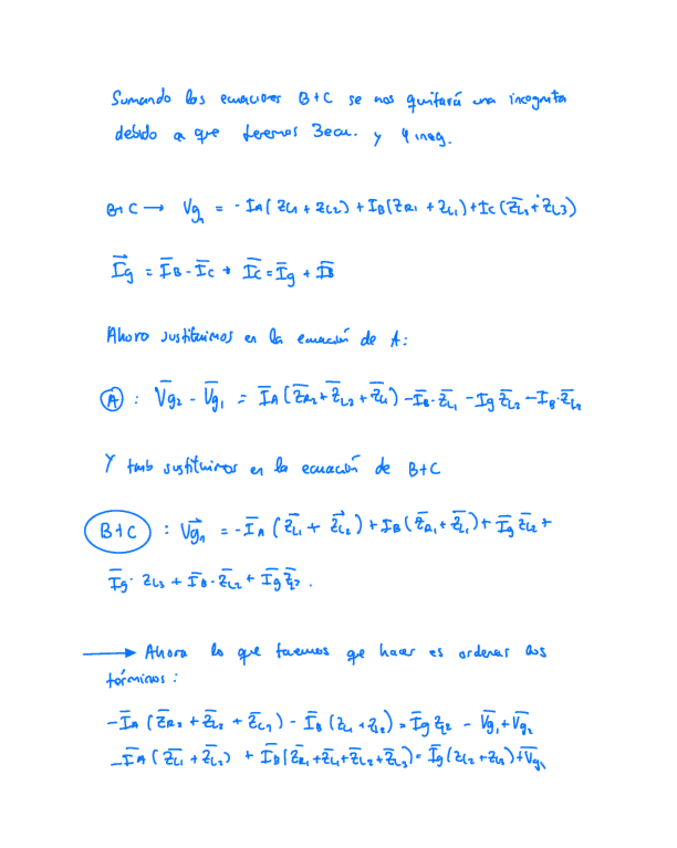 Sumando las ecuaciones B+C se nos quitará una incognita
debido a que tenemos 3 ecu. y 4 incg.
B+C → Vg₁ = -I_A(Z_L1 + Z_L2) + I_B(Z_R1 + Z_L1) + I_C(Z̅_L2 + Z_L3)
I̅g = I̅_B - I̅_C → I̅_C = I̅g + I̅_B
Ahora sustituimos en la ecuación de A:
Ⓐ : V̅g₂ - V̅g₁ = I̅_A(Z̅_R2 + Z̅_L2 + Z̅_L1) - I̅_B·Z̅_L1 - I̅g Z̅_L2 - I̅_B·Z̅_L2
Y tmb sustituimos en la ecuación de B+C
B+C : V̅g₁ = -I̅_A(Z̅_L1 + Z̅_L2) + I_B(Z̅_R1 + Z̅_L1) + I̅g Z̅_L2 +
I̅g · Z_L3 + I̅_B·Z̅_L2 + I̅g Z̅_?.
→ Ahora lo que tenemos que hacer es ordenar los
términos:
-I̅_A(Z̅_R2 + Z̅_L2 + Z̅_L1) - I̅_B(Z_L1 + Z_L2) = I̅g Z_L2 - V̅g₁ + V̅g₂
-I̅_A(Z̅_L1 + Z̅_L2) + I̅_B(Z̅_R1 + Z̅_L1 + Z̅_L2 + Z̅_L3) = I̅g(Z_L2 + Z_L3) + V̅g₁